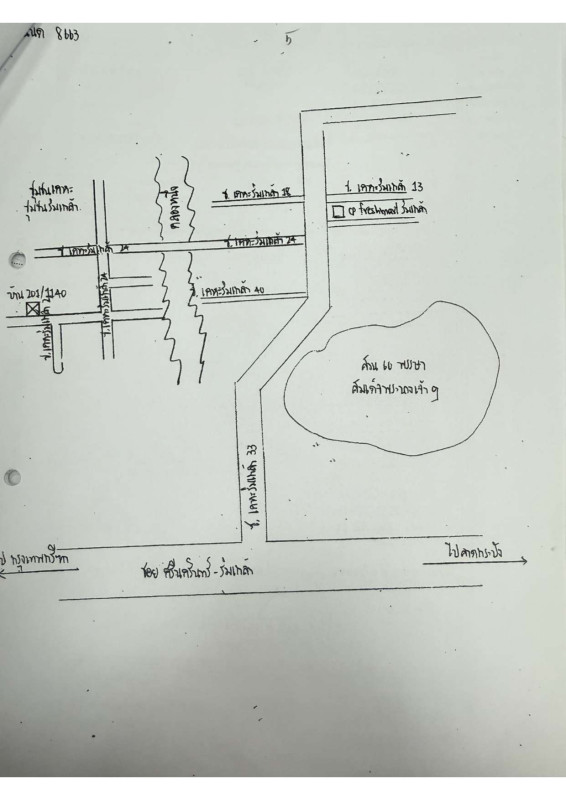 8663
5
ชุมชนเคหะ
ชุมชนร่มเกล้า
ซ. เคหะร่มเกล้า 28
ซ. เคหะร่มเกล้า 13
CP freshmart ร่มเกล้า
ซ. เคหะร่มเกล้า 24
ซ. เคหะร่มเกล้า 24
บ้าน 201/1140
ซ. เคหะร่มเกล้า 40
สวน 60 พรรษา
สมเด็จพระนางเจ้าฯ
ซ. เคหะร่มเกล้า 33
ไป กรุงเทพกรีฑา
ไปลาดกระบัง
ซอย ศรีนครินทร์ - ร่มเกล้า